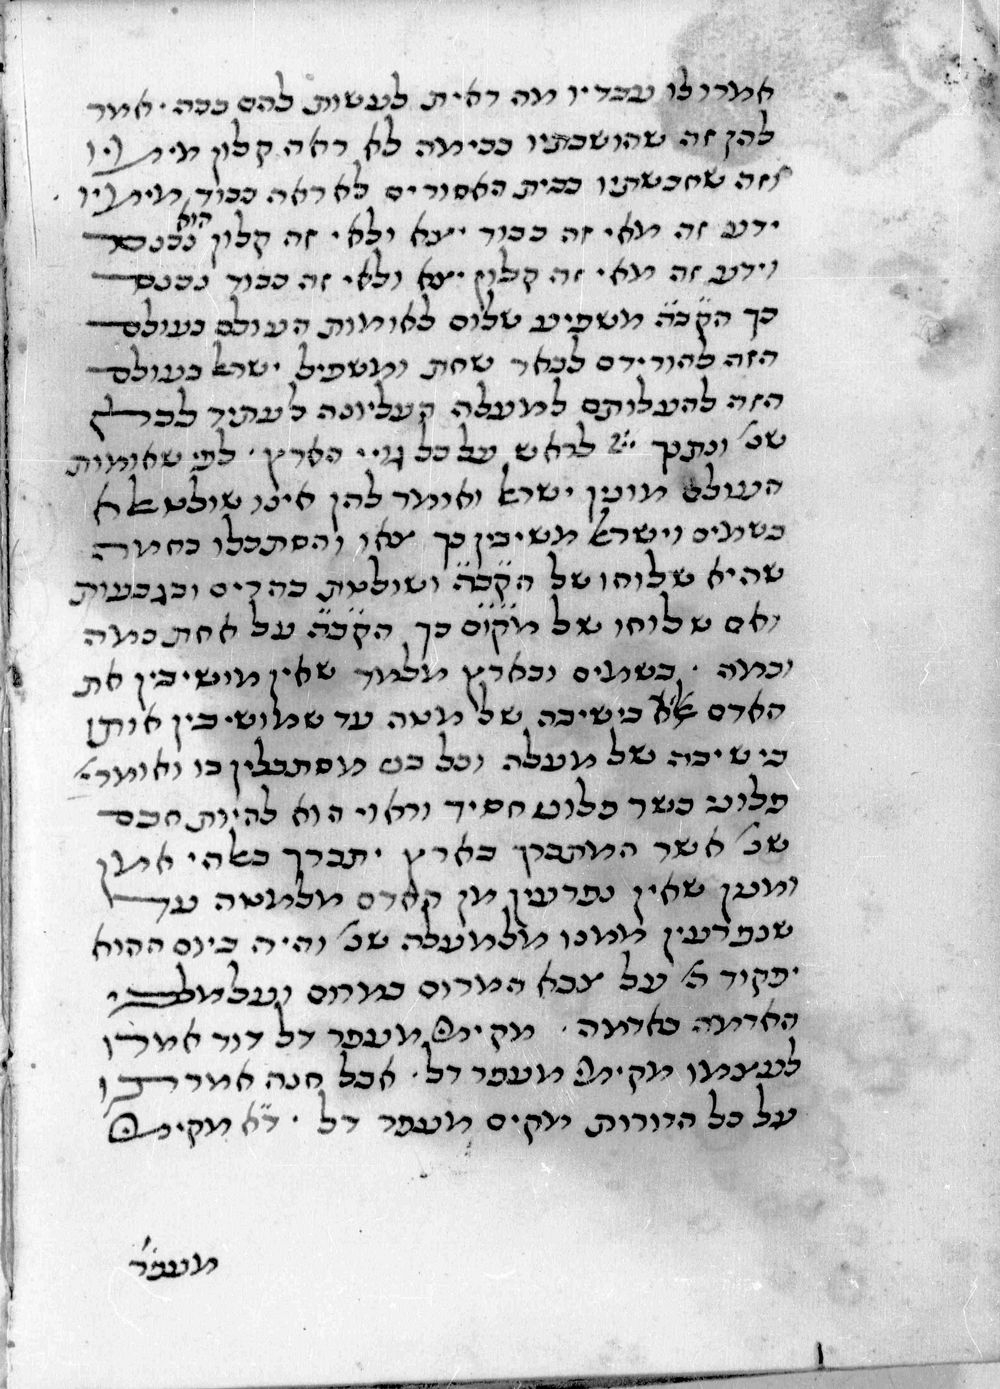 אמרו לו עבדיו מה ראית לעשות להם ככה · אמר
להן זה שהושבתיו בבימה לא ראה קלון מימיו
וזה שחבשתיו בבית האסורים לא ראה כבוד מימיו
ידע זה מאי זה כבוד יצא ולאי זה קלון הוא נכנס
וידע זה מאי זה קלון יצא ולאי זה כבוד נכנס
כך הקבה משפיע שלום לאומות העולם בעולם
הזה להורידם לבאר שחת ומשפיל ישראל בעולם
הזה להעלותם למעלה העליונה לעתיד לבא
שנ' ונתנך ייי לראש על כל גויי הארץ · לפי שאומות
העולם מונין ישראל ואומר להן אינו שולט אלא
בשמים וישראל משיבין כך צאו והסתכלו בחמה
שהיא שלוחו של הקבה ושולטת בהרים ובגבעות
ואם שלוחו של מקום כך הקבה על אחת כמה
וכמה · בשמים ובארץ מלמד שאין מושיבין את
האדם אלא בישיבה של מטה עד שמושיבין אותו
בישיבה של מעלה וכל בם מסתכלין בו ואומרי'
פלוני כשר פלוני חסיד וראוי הוא להיות חכם
שנ' אשר המתברך בארץ יתברך באלהי אמן
ומנין שאין נפרעין מן האדם מלמטה עד
שנפרעין ממנו מלמעלה שנ' והיה ביום ההוא
יפקוד ה' על צבא המרום במרום ועל מלכי
האדמה באדמה · מקים מעפר דל דוד אמרו
לעצמו מקים מעפר דל · אבל חנה אמרתו
על כל הדורות מקים מעפר דל · ד״א מקים
מעפר